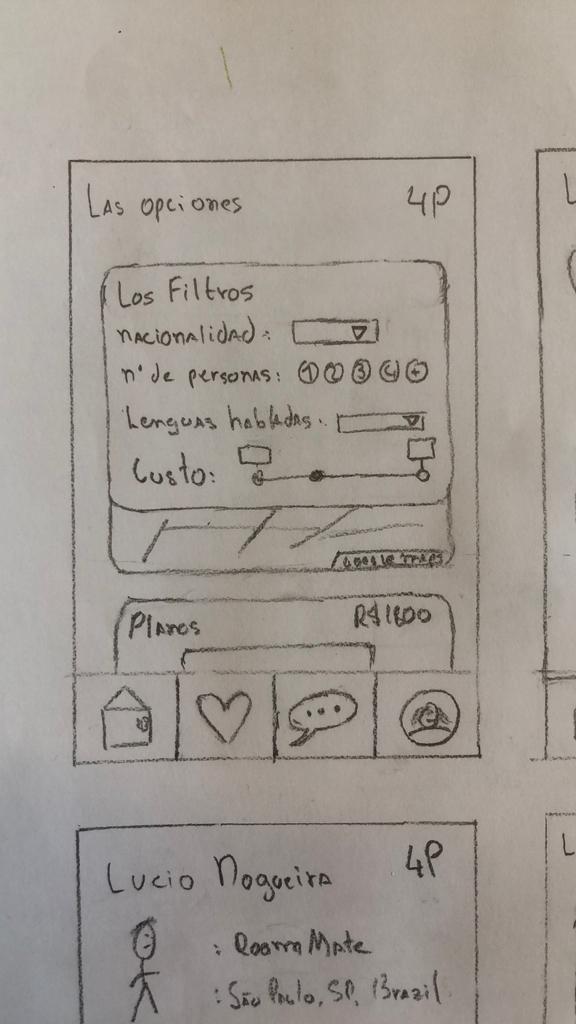 Las opciones 4P
Los Filtros
nacionalidad:
nº de personas: 1 2 3 4 +
Lenguas habladas:
Custo:
Google maps
Planos R$1600
Lucio Nogueira 4P
: Rooma Mate
: São Paulo, SP, Brazil
L
L